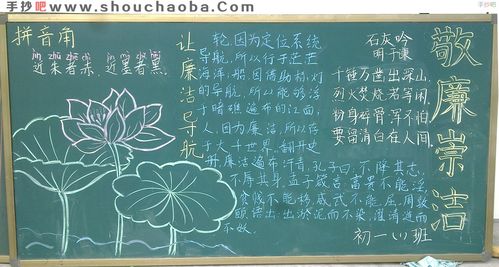 手抄吧 www.shouchaoba.com
手抄吧
敬廉崇洁
拼音角
近朱者赤 近墨者黑
让廉洁导航
轮,因为定位系统
导航,所以行于茫茫
海洋,船因借助标灯
的导航,所以能够浮
于暗礁遍布的江面;
人,因为廉洁,所以存
于大千世界,翻开史
册,廉洁遍布汗青,孔子曰,不降其志,
不辱其身,孟子敬言:富贵不能淫,
贫贱不能移,威武不能屈,周敦
颐语出:出淤泥而不染,濯清涟而
不妖。
石灰吟
明 于谦
千锤万凿出深山,
烈火焚烧若等闲。
粉身碎骨浑不怕,
要留清白在人间。
初一(1)班